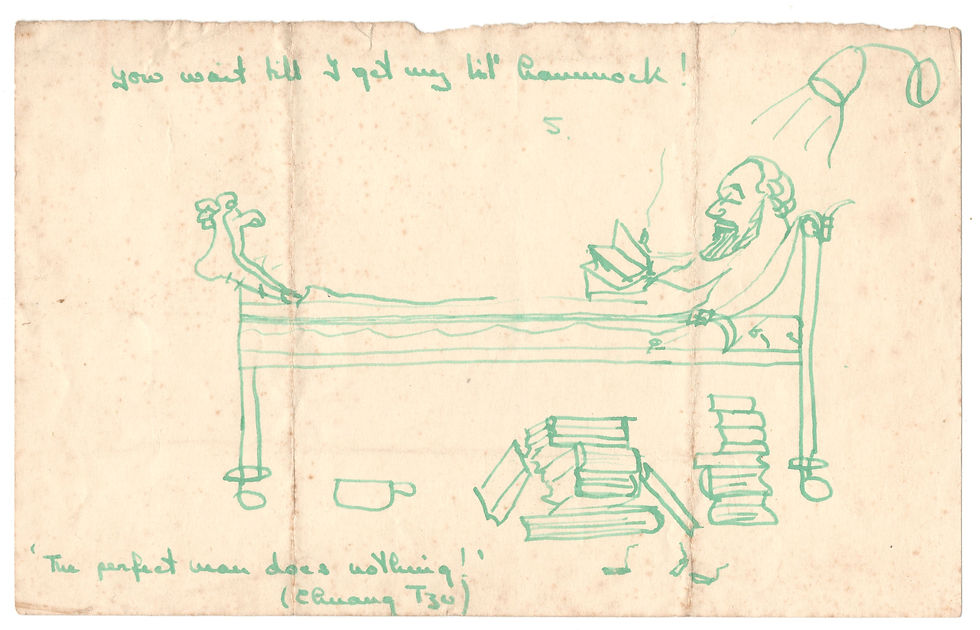 You wait till I get my lil' hammock!
5.
'The perfect man does nothing!'
(Chuang Tzu)